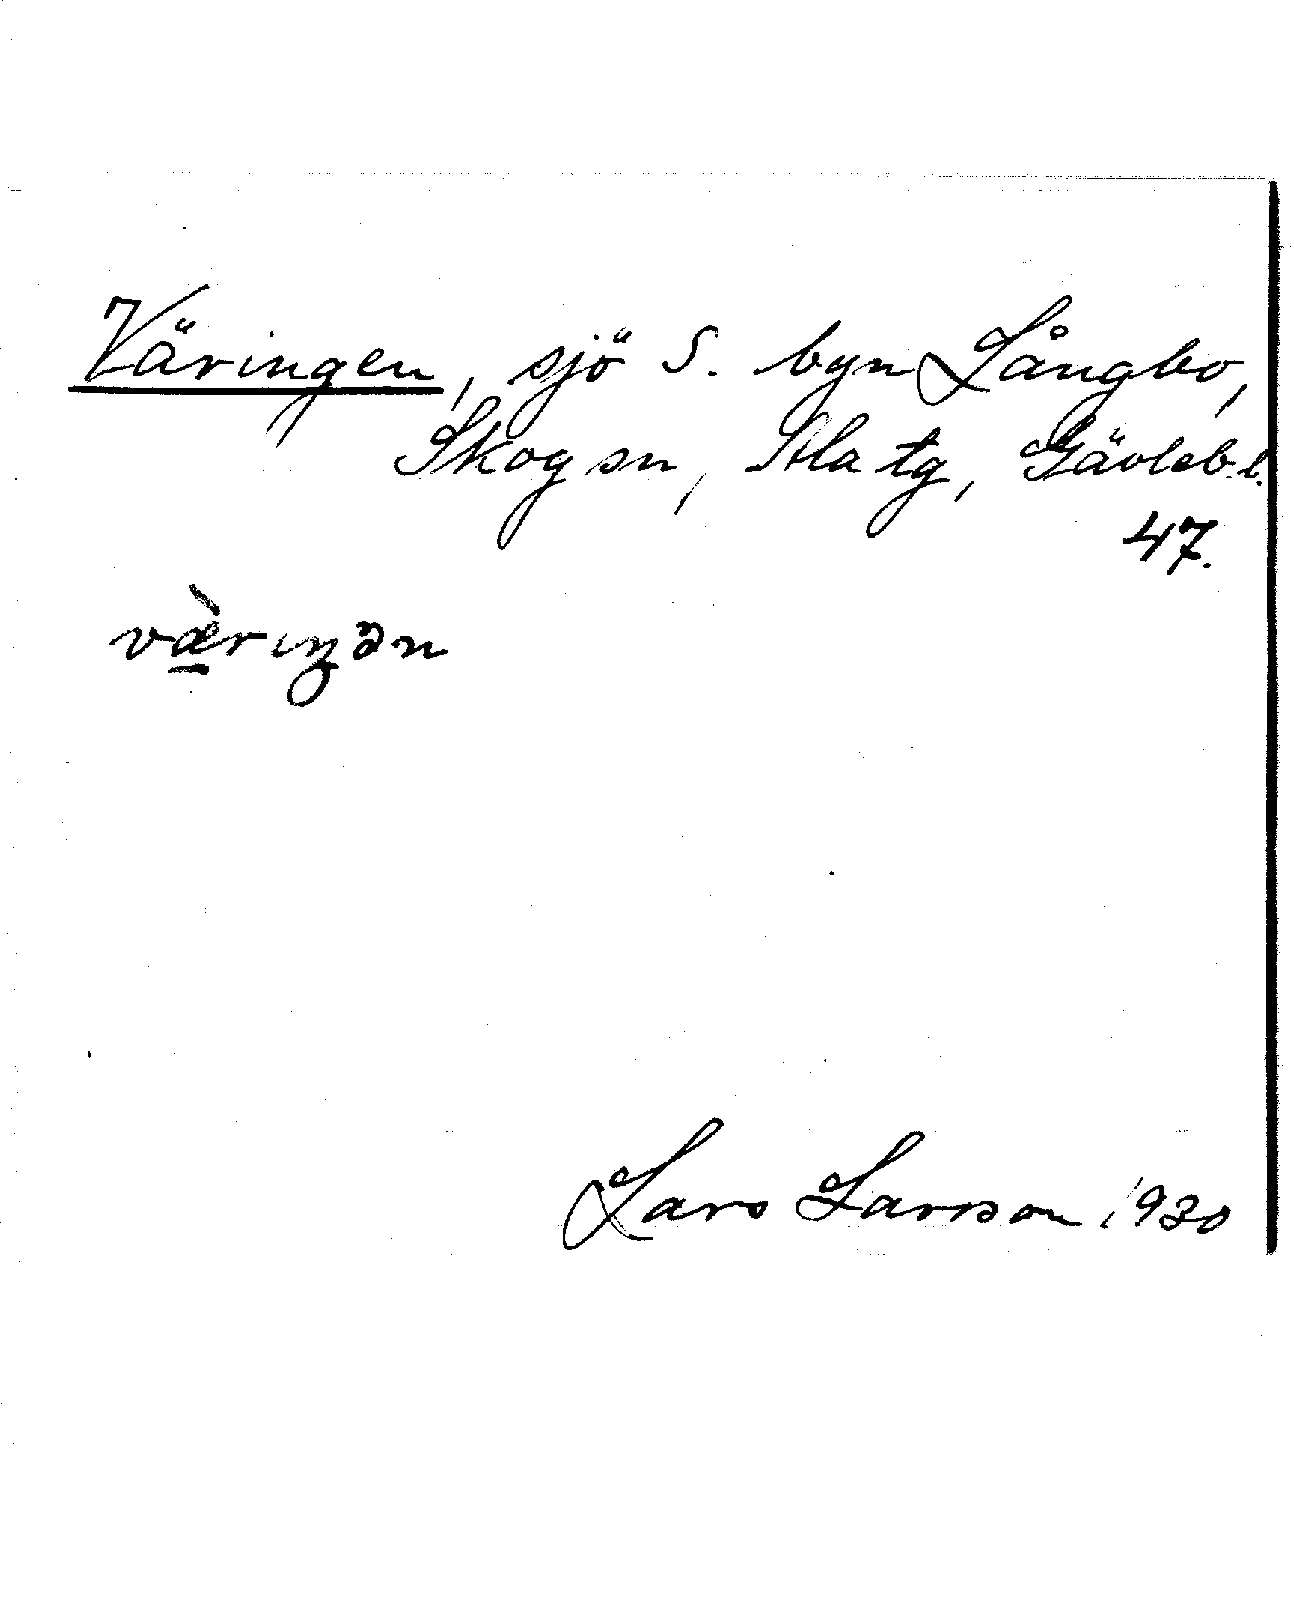 Väringen, sjö S. byn Långbo,
Skog sn, Ala tg, Gävleb. l.
47.
væ̀rıŋən
Lars Larsson 1930